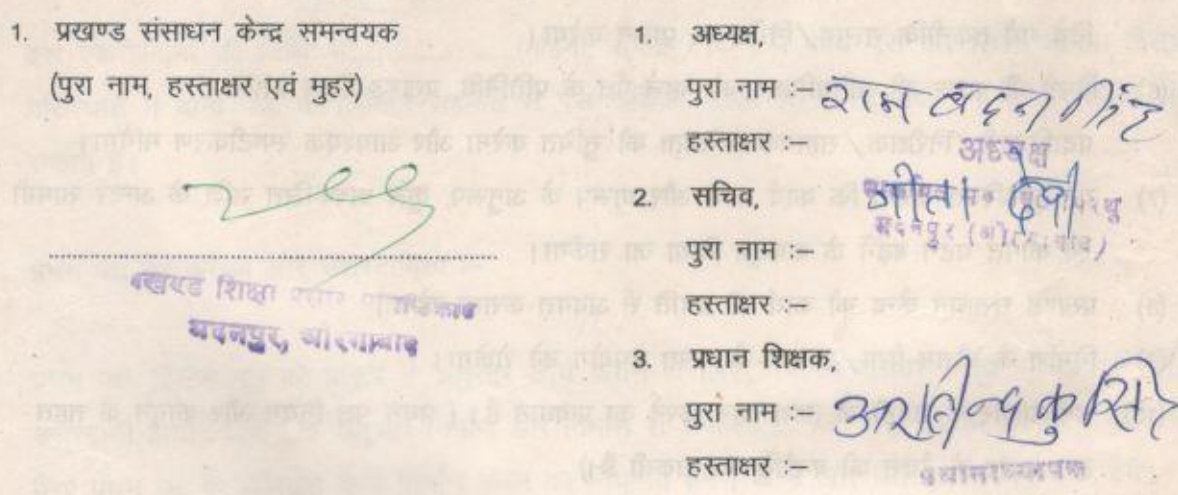 1. प्रखण्ड संसाधन केन्द्र समन्वयक
(पुरा नाम, हस्ताक्षर एवं मुहर)
प्रखण्ड शिक्षा प्रसार
मदनपुर, औरंगाबाद
1. अध्यक्ष,
पुरा नाम :– राम बदन सिंह
हस्ताक्षर :–
अध्यक्ष
2. सचिव, गीता देवी
मदनपुर (औरंगाबाद)
पुरा नाम :–
हस्ताक्षर :–
3. प्रधान शिक्षक,
पुरा नाम :–
हस्ताक्षर :–
प्रधानाध्यापक